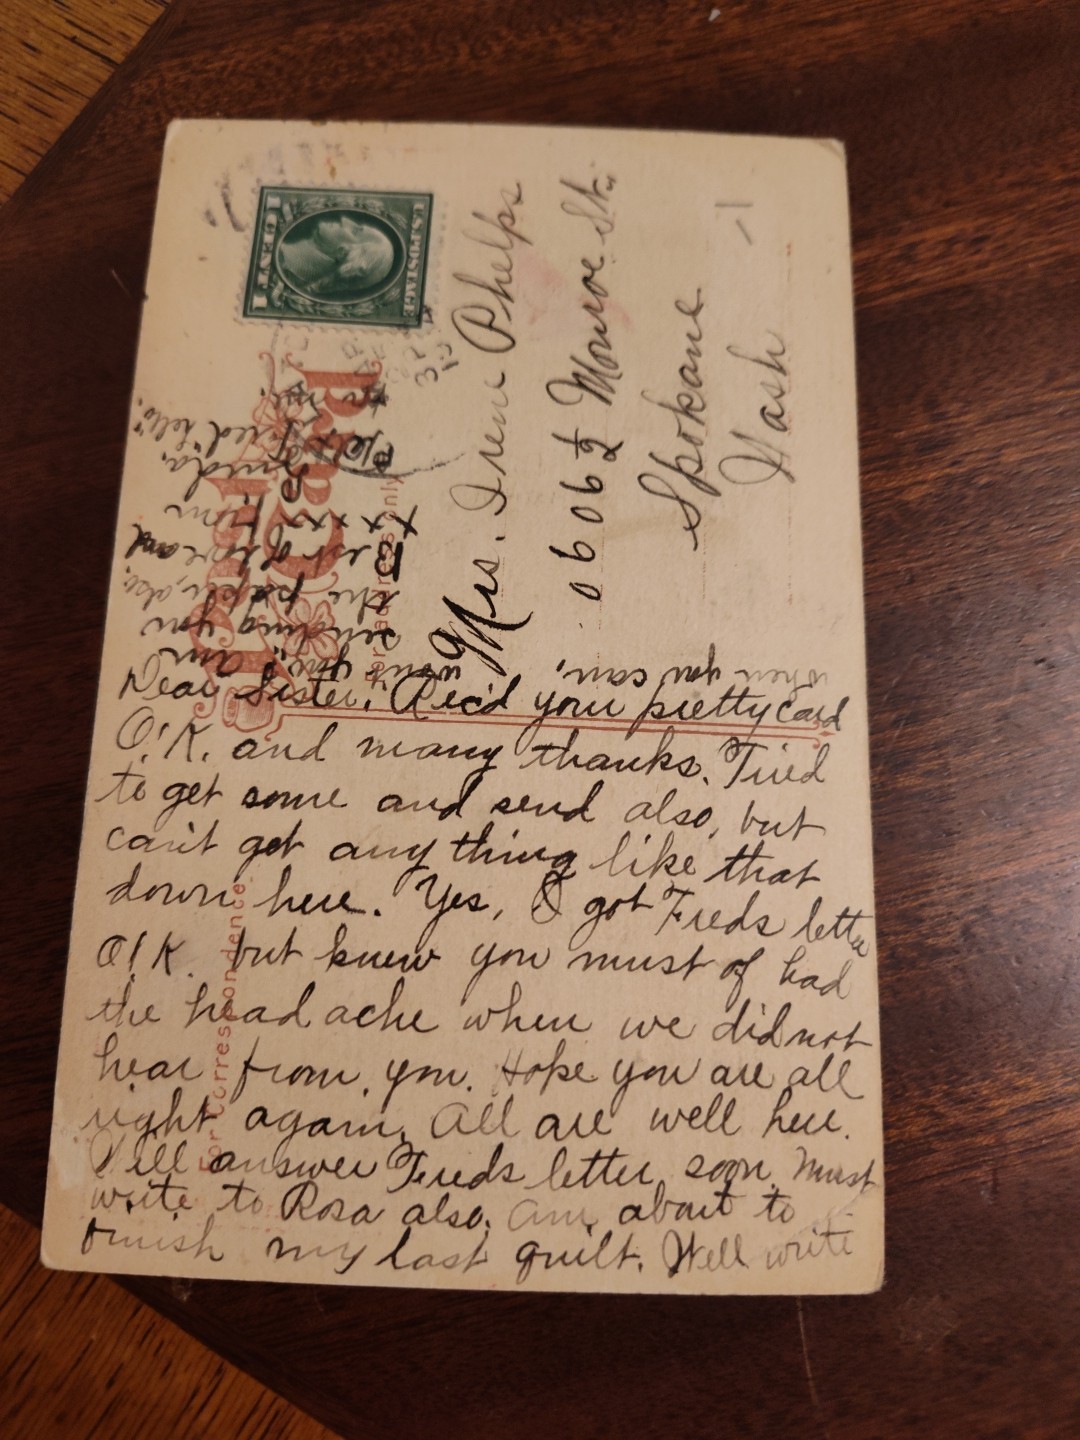 Dear Sister. Rec'd your pretty card
O.K. and many thanks. Tried
to get some and send also, but
can't get any thing like that
down here. Yes, I got Freds letter
O.K. but knew you must of had
the head ache when we did not
hear from you. Hope you are all
right again. All are well here.
Will answer Freds letter soon. Must
write to Rosa also. Am about to
finish my last quilt. Well write
when you can, won't you? am
sending you
the paper, also.
Best of love and
xxx from
Linda.
Tell Fred "hello"
for me.
Mrs. Irene Phelps
0606½ Monroe St.
Spokane
Wash
Post Card
For address only
For Correspondence
U.S. POSTAGE
1 CENT 1